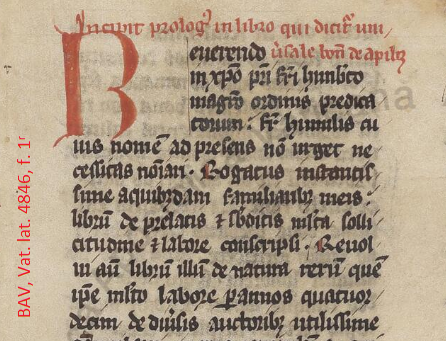 Incipit prolog' in libro qui dicit' uni
u'sale bon' de apib'
Reuerendo
in xpo p'ri fr'i humb'to
mag'ro ordinis predica
torum. fr' humilis cu
ius nomen ad presens no' urget ne
cessitas no'iari. Rogatus instantis
sime a quibusdam familiarib' meis.
libru' de prelatis & sb'ditis m'lta solli
citudine & labore conscripsi. Reuol
ui au' libru' illu' de natura reru' que'
ip'e m'lto labore p annos quatuor
decim de diu'sis auctorib' utilissime
BAV, Vat. lat. 4846, f. 1r